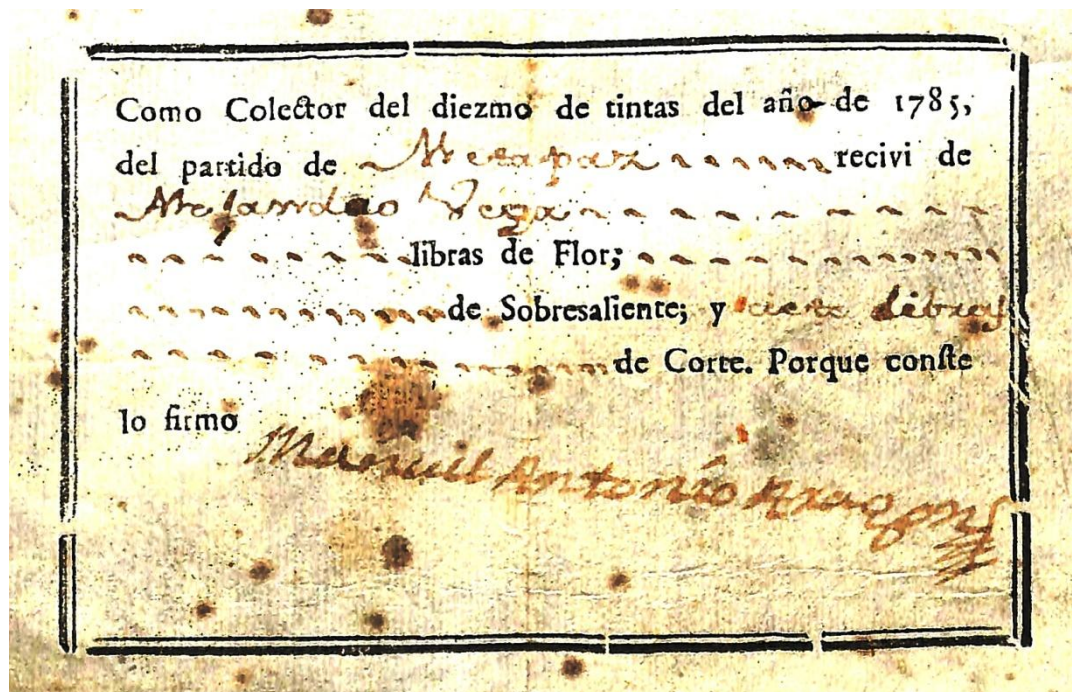 Como Colector del diezmo de tintas del año de 1785,
del partido de Metapaz recivi de
Alejandro Vega
libras de Flor;
de Sobresaliente; y siete libras
de Corte. Porque conſte
lo firmo
Manuel Antonio Aragon